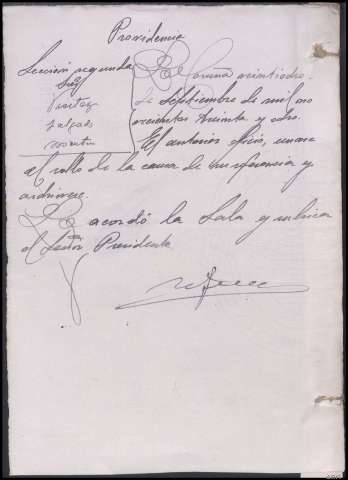 Providencia
Sección segunda
Salgado
La Coruña veintiocho
de Septiembre de mil no
vecientos treinta y ocho.
El anterior oficio, unase
al rollo de la causa de su referencia y
archivese.
Lo acordó la Sala y rubrica
el Señor Presidente